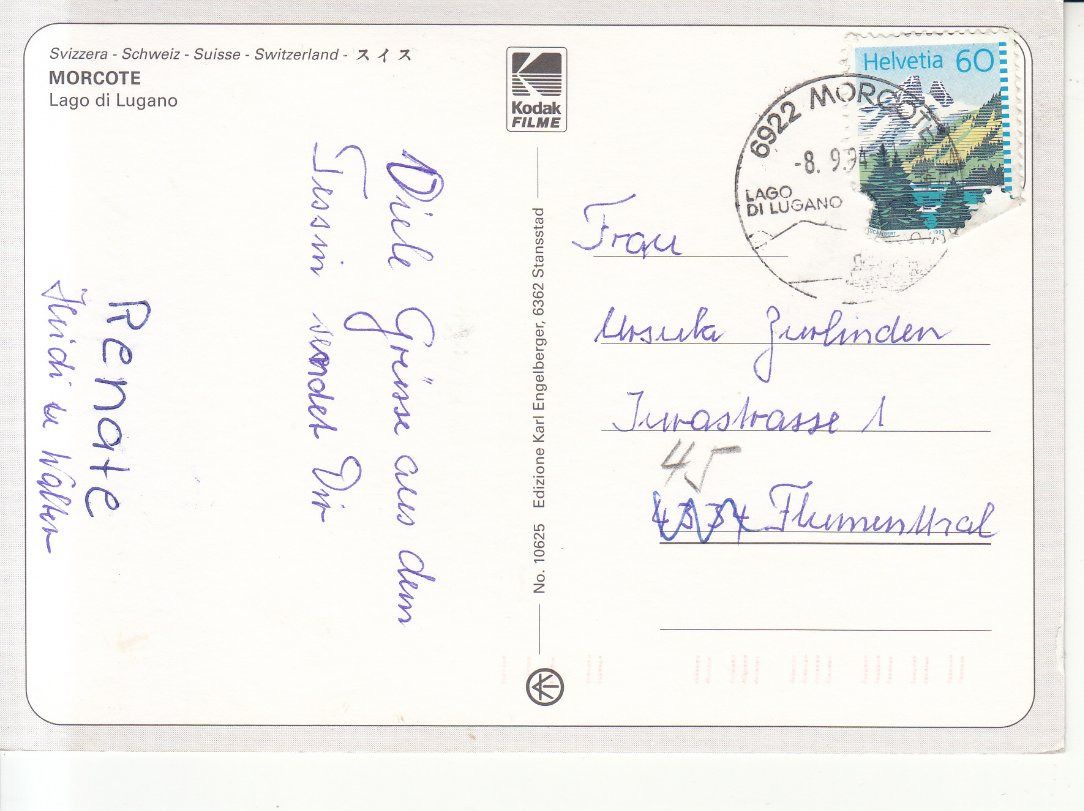 Svizzera - Schweiz - Suisse - Switzerland - スイス
MORCOTE
Lago di Lugano
Kodak
FILME
Helvetia 60
6922 MORCOTE
-8. 9.94
LAGO
DI LUGANO
Viele Grüsse aus dem
Tessin sendet Dir
Renate
Heidi u Walter
No. 10625 Edizione Karl Engelberger, 6362 Stansstad
Frau
Ursula Zurlinden
Jurastrasse 1
45
Flumenthal